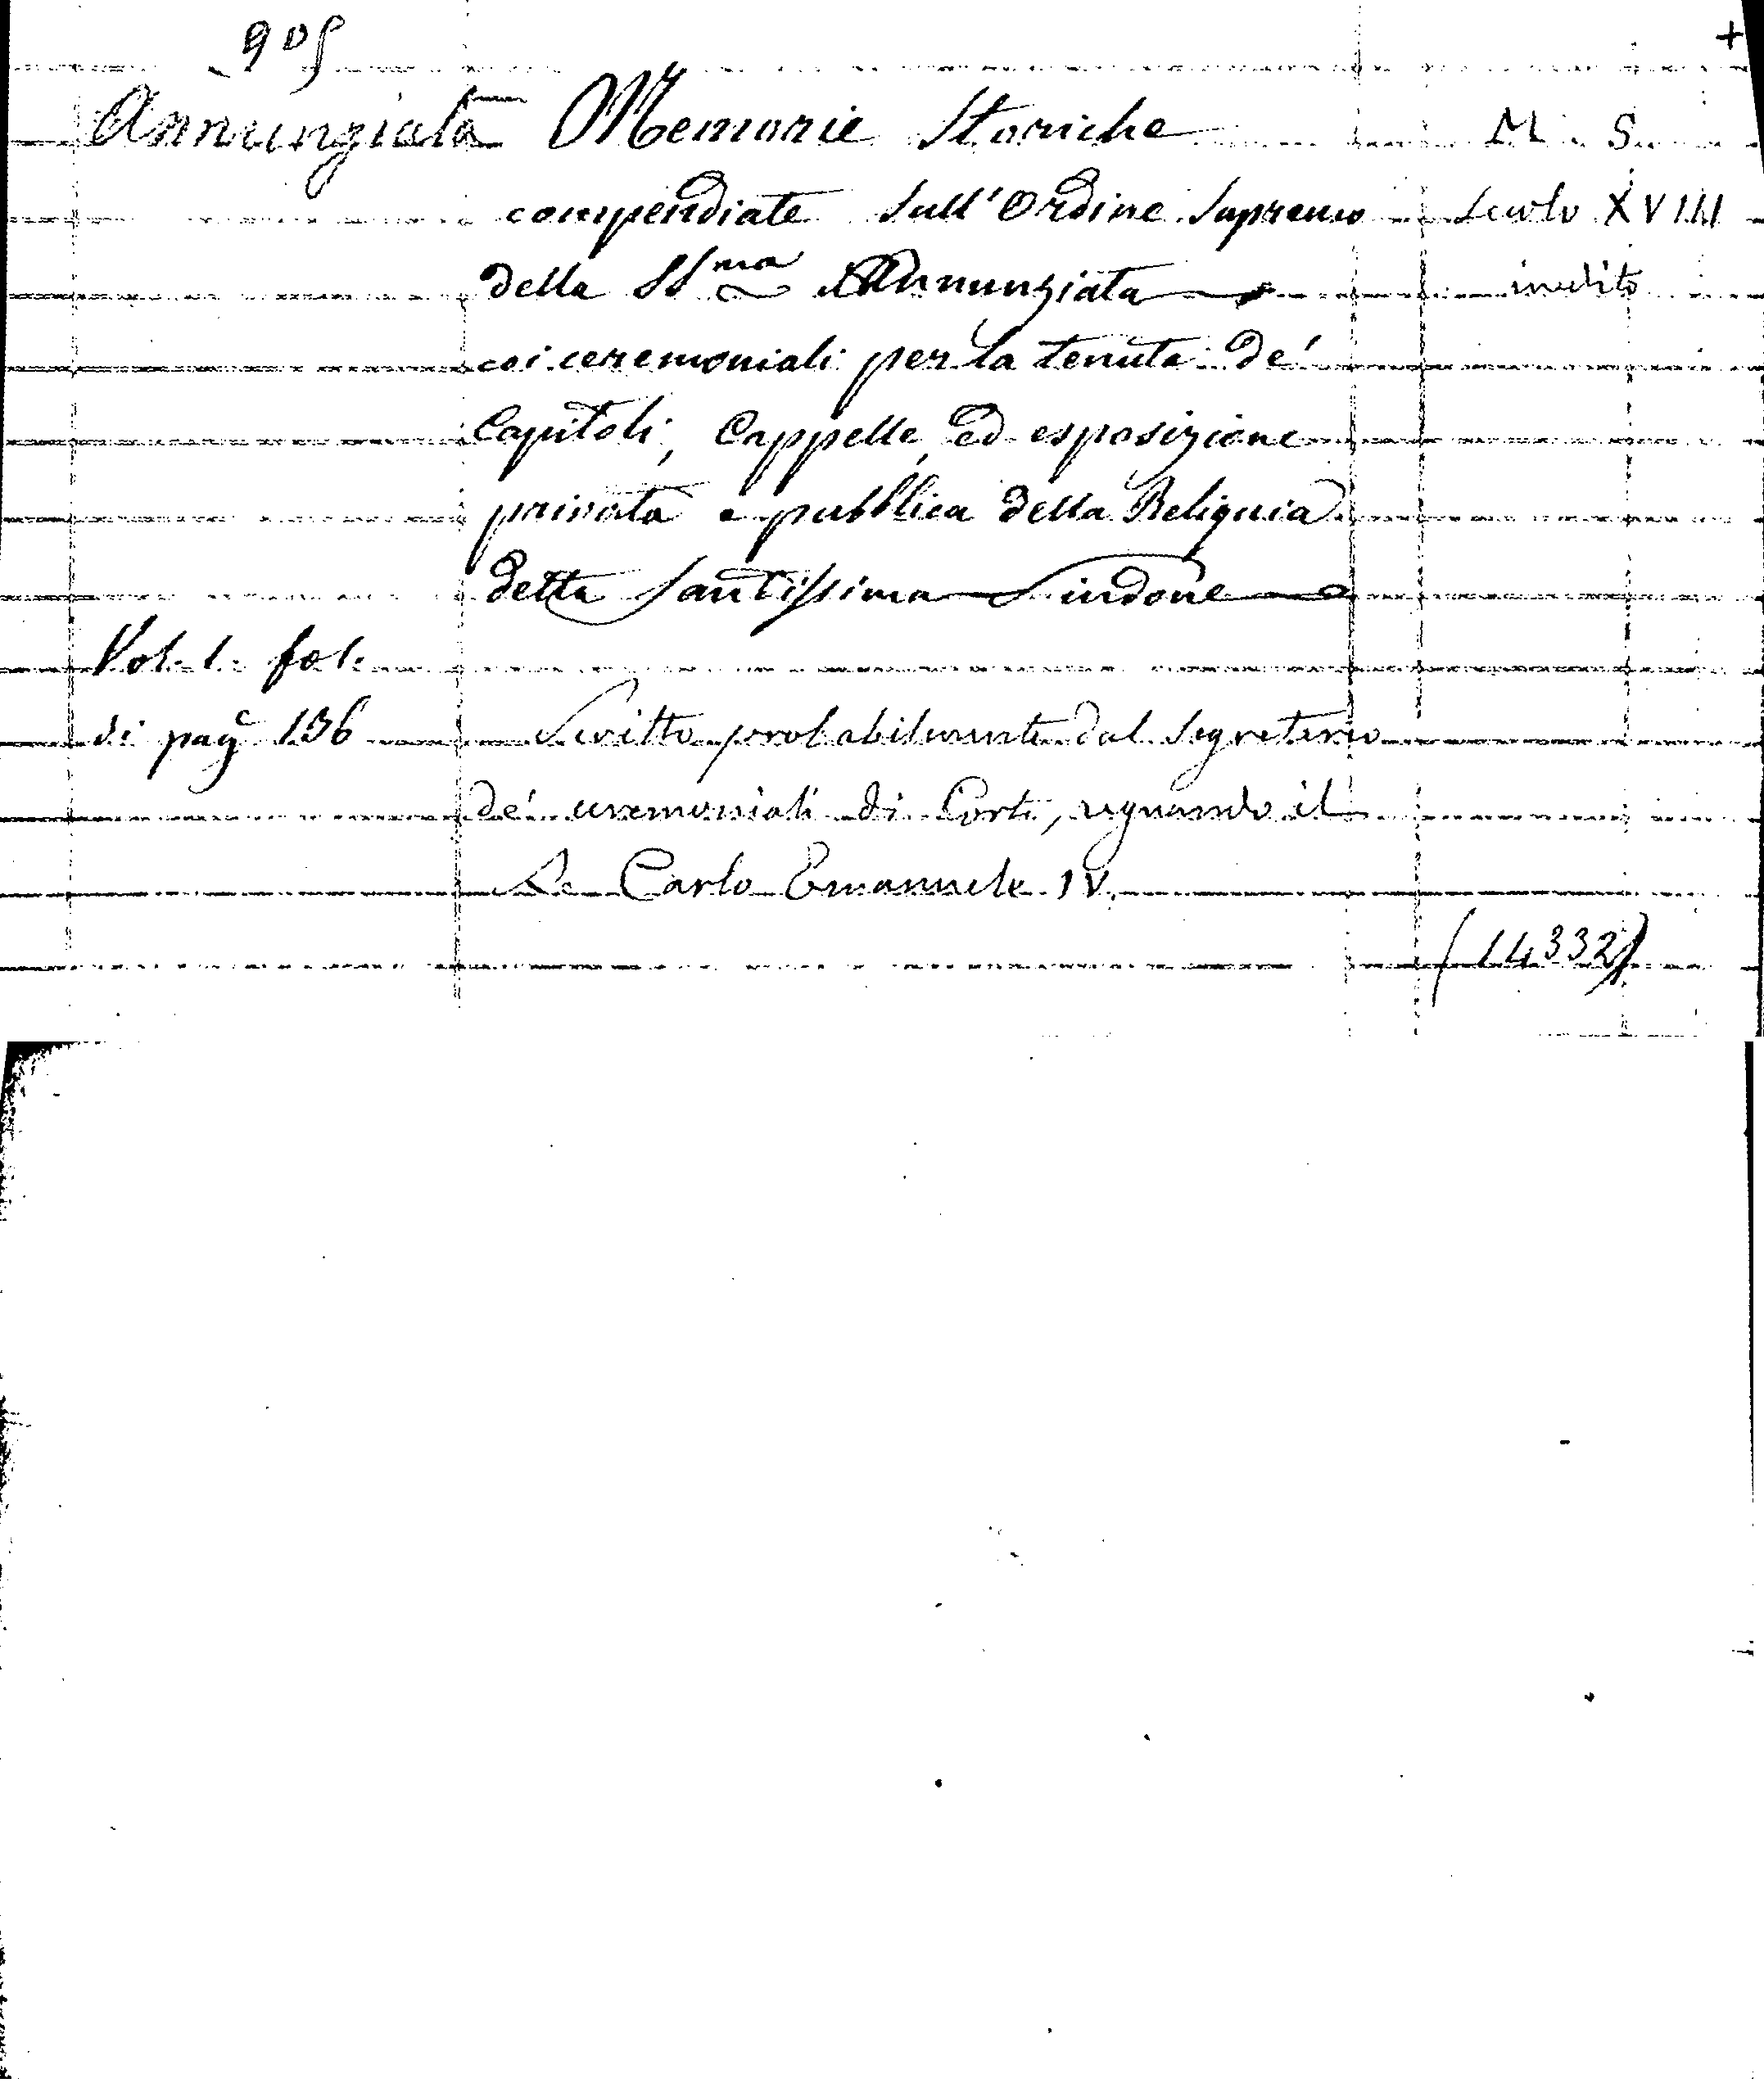 905 +
Annunziata Memorie Storiche M. S.
compendiate sull'Ordine Supremo Secolo XVIII
della SS.ma Annunziata inedito
coi ceremoniali per la tenuta de'
Capitoli, Cappelle, ed esposizione
privata e pubblica della Reliquia
della Santissima Sindone
Vol. 1. fol.
di pag.e 136 Scritto probabilmente dal Segretario
de' ceremoniali di Corte, regnando il
Re Carlo Emanuele IV.
(14332)